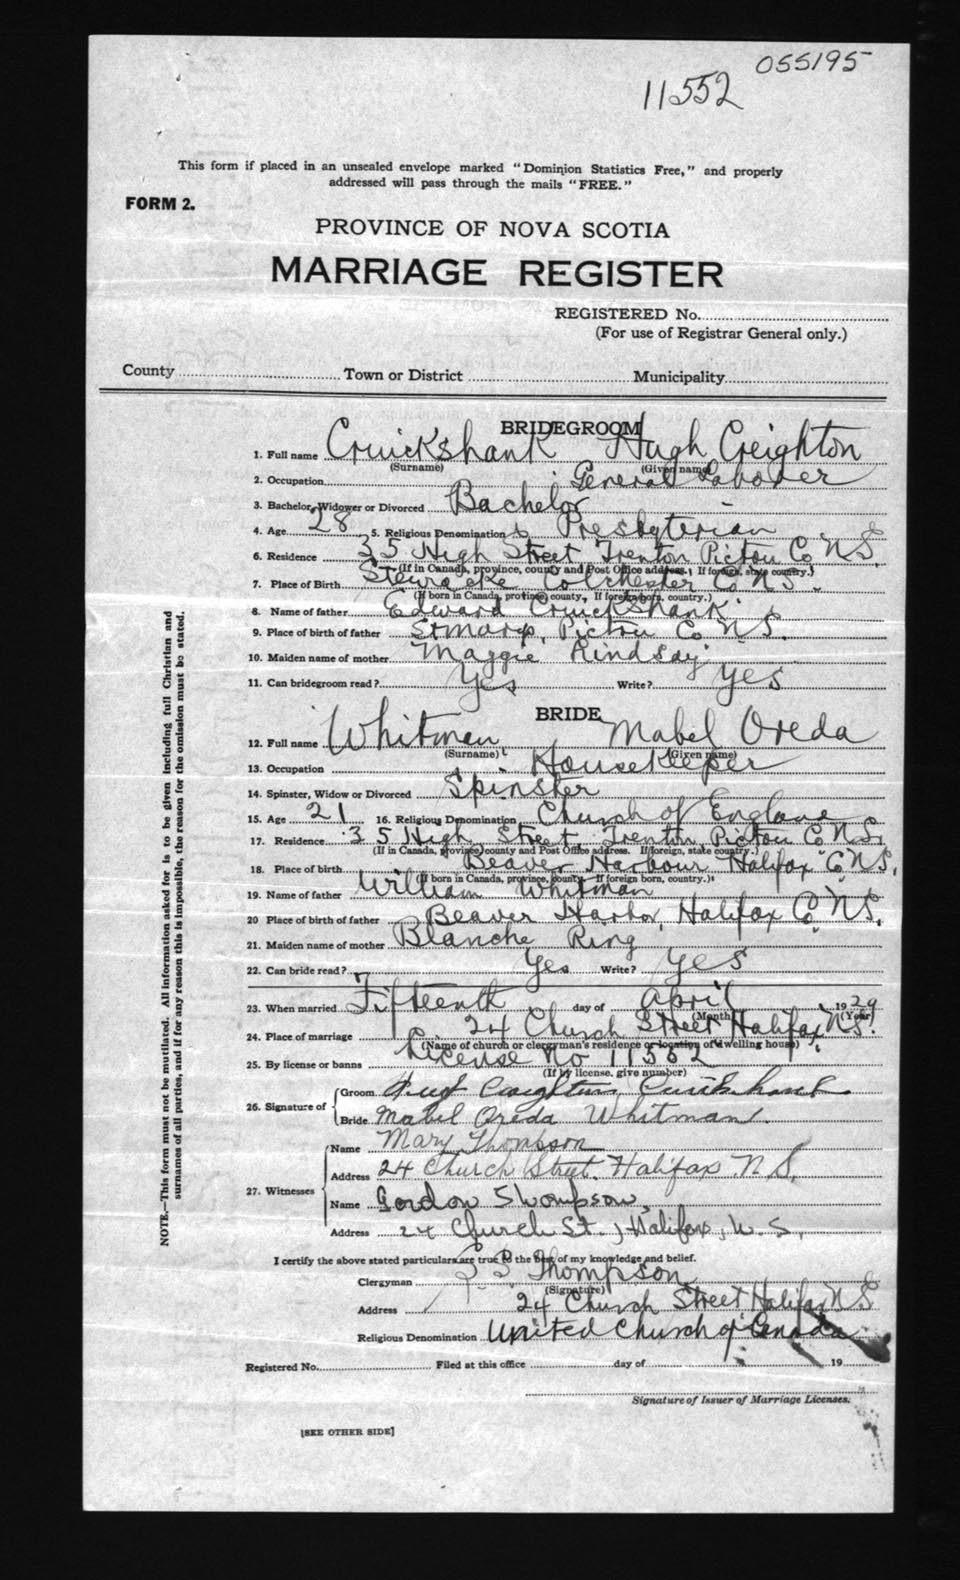 055195
11552
This form if placed in an unsealed envelope marked "Dominion Statistics Free," and properly
addressed will pass through the mails "FREE."
FORM 2.
PROVINCE OF NOVA SCOTIA
MARRIAGE REGISTER
REGISTERED No.
(For use of Registrar General only.)
County Town or District Municipality
BRIDEGROOM
1. Full name Cruickshank Hugh Creighton
(Surname) (Given name)
2. Occupation General Labover
3. Bachelor, Widower or Divorced Bachelor
4. Age 28 5. Religious Denomination Presbyterian
6. Residence 35 High Street Trenton Pictou Co N.S.
(If in Canada, province, county and Post Office address. If foreign, state country.)
7. Place of Birth Stewiacke Colchester Co N.S.
(If born in Canada, province, county, If foreign born, country.)
8. Name of father Edward Cruickshank
9. Place of birth of father St Marys, Pictou Co N.S.
10. Maiden name of mother Maggie Lindsay
11. Can bridegroom read? Yes Write? Yes
BRIDE
12. Full name Whitman Mabel Oreda
(Surname) (Given name)
13. Occupation Housekeeper
14. Spinster, Widow or Divorced Spinster
15. Age 21 16. Religious Denomination Church of England
17. Residence 35 High Street, Trenton Pictou Co N.S.
(If in Canada, province, county and Post Office address. If foreign, state country.)
18. Place of birth Beaver Harbour Halifax Co N.S.
(If born in Canada, province, county. If foreign born, country.)
19. Name of father William Whitman
20 Place of birth of father Beaver Harbor, Halifax Co N.S.
21. Maiden name of mother Blanche Ring
22. Can bride read? Yes Write? Yes
23. When married Fifteenth day of April 1929
(Month) (Year)
24. Place of marriage 24 Church Street Halifax N.S.
(Name of church or clergyman's residence or location of dwelling house)
25. By license or banns License No 11552
(If by license, give number)
26. Signature of Groom Hugh Creighton Cruickshank
Bride Mabel Oreda Whitman
27. Witnesses Name Mary Thompson
Address 24 Church Street, Halifax N.S.
Name Gordon Thompson,
Address 24 Church St., Halifax, N.S.
I certify the above stated particulars are true to the best of my knowledge and belief.
Clergyman Thompson
(Signature)
Address 24 Church Street Halifax N S
Religious Denomination United Church of Canada
Registered No. Filed at this office day of 19
Signature of Issuer of Marriage Licenses.
[SEE OTHER SIDE]
NOTE.—This form must not be mutilated. All information asked for is to be given including full Christian and
surnames of all parties, and if for any reason this is impossible, the reason for the omission must be stated.